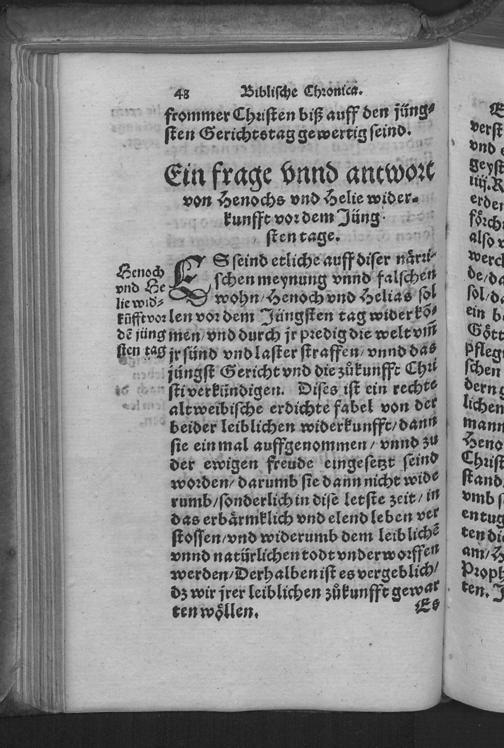 48 Biblische Chronica.
frommer Christen biß auff den jüng⸗
sten Gerichtstag gewertig seind.
Ein frage vnnd antwort
von Henochs vnd Helie wider⸗
kunfft vor dem Jüng⸗
sten tage.
Henoch
vnd He
lie wid⸗
kũfft vor
dẽ jüng
sten tag
ES seind etliche auff diser närri⸗
schen meynung vnnd falschen
wohn/Henoch vnd Helias sol
len vor dem Jüngsten tag wider kõ⸗
men/vnd durch jr predig die welt vm̃
jr sünd vnd laster straffen/vnnd das
jüngst Gericht vnd die zůkunfft Chri
sti verkündigen. Dises ist ein rechte
altweibische erdichte fabel von der
beider leiblichen widerkunfft/dann
sie ein mal auffgenommen/vnnd zu
der ewigen freude eingesetzt seind
worden/darumb sie dann nicht wide
rumb/sonderlich in dise letste zeit/in
das erbärmklich vnd elend leben ver
stossen/vnd widerumb dem leiblichẽ
vnnd natürlichen todt vnderworffen
werden/Derhalben ist es vergeblich/
dz wir jrer leiblichen zůkunfft gewar
ten wöllen. Es
verst
vnd e
geyst
iiij.R
erden
förch
also v
werck
de/da
sol/d
ein b
Gött
pfleg
schen
dern g
lichen
mann
Heno
Christ
stand
vmb s
en tug
ten di
am/H
Proph
ten. J